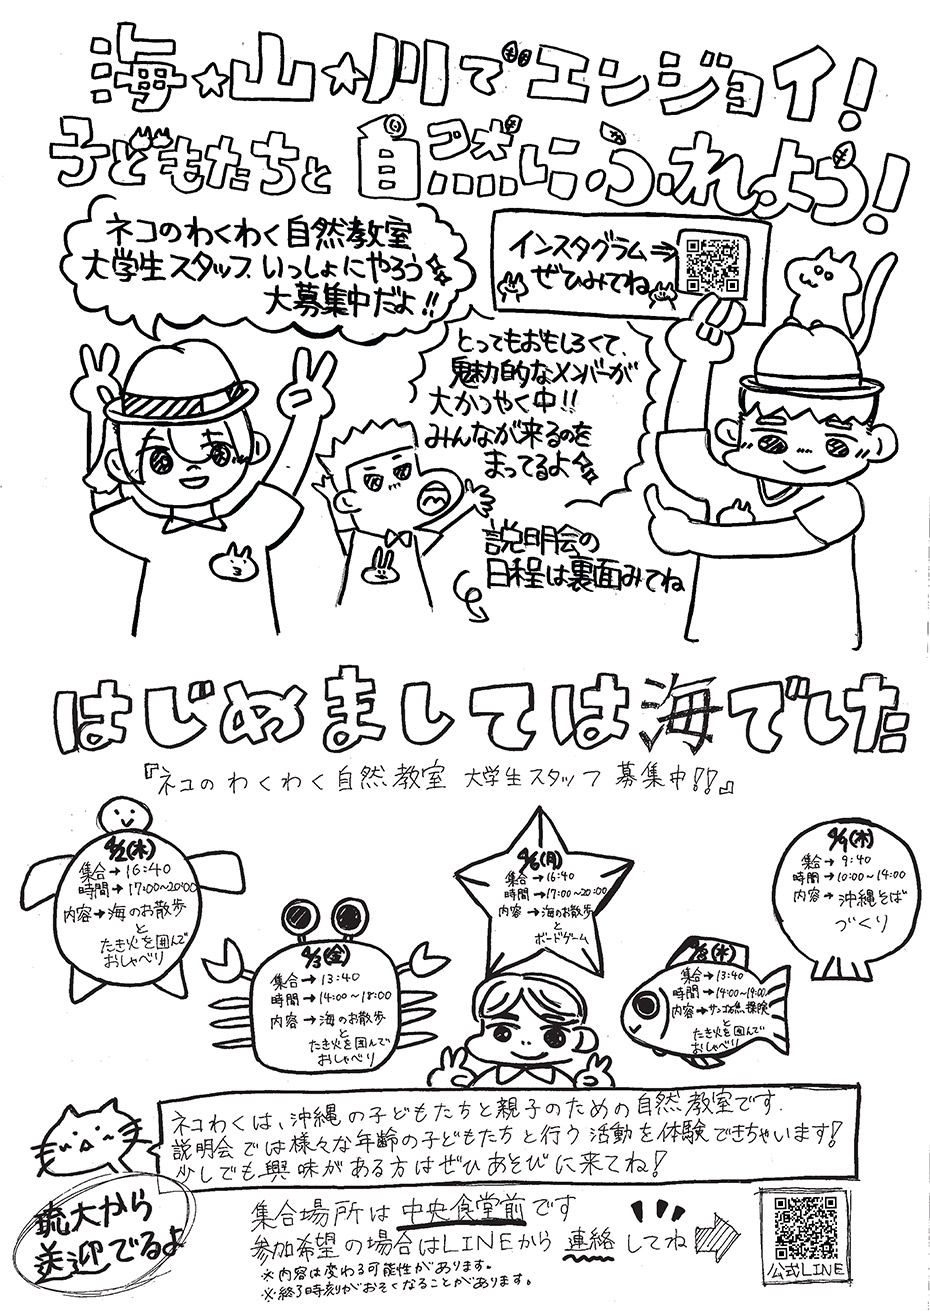 海☆山☆川でエンジョイ!
子どもたちと自然にふれよう!
ネコのわくわく自然教室
大学生スタッフ いっしょにやろう
大募集中だよ!!
インスタグラム⇒
ぜひみてね
とってもおもしろくて、
魅力的なメンバーが
大かつやく中!!
みんなが来るのを
まってるよ
説明会の
日程は裏面みてね
はじめましては海でした
『ネコのわくわく自然教室 大学生スタッフ 募集中!!』
4/2(木)
集合→16:40
時間→17:00~20:00
内容→海のお散歩
と
たき火を囲んで
おしゃべり
4/3(金)
集合→13:40
時間→14:00~18:00
内容→海のお散歩
と
たき火を囲んで
おしゃべり
4/6(月)
集合→16:40
時間→17:00~20:00
内容→海のお散歩
と
ボードゲーム
4/8(水)
集合→13:40
時間→14:00~19:00
内容→サンゴ礁探険
と
たき火を囲んで
おしゃべり
4/9(木)
集合→9:40
時間→10:00~14:00
内容→沖縄そば
づくり
ネコわくは、沖縄の子どもたちと親子のための自然教室です.
説明会では様々な年齢の子どもたちと行う活動を体験できちゃいます!
少しでも興味がある方はぜひあそびに来てね!
琉大から
送迎でるよ
集合場所は中央食堂前です
参加希望の場合はLINEから連絡してね
※内容は変わる可能性があります。
※終了時刻がおそくなることがあります。
公式LINE